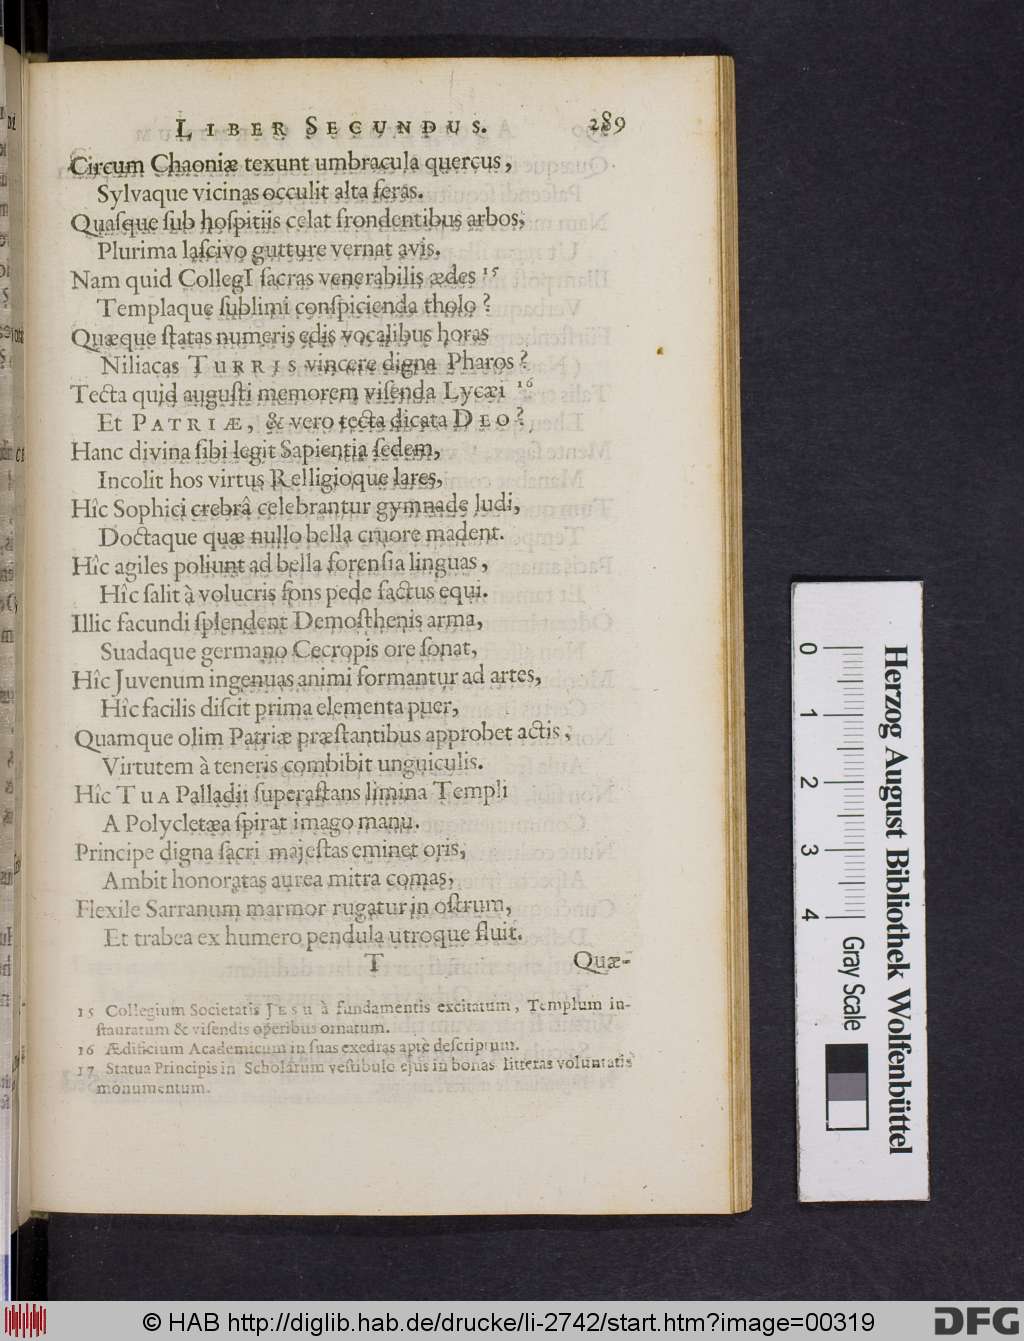 LIBER SECUNDUS. 289
Circum Chaoniæ texunt umbracula quercus,
Sylvaque vicinas occulit alta feras.
Quaſque ſub hoſpitiis celat frondentibus arbos,
Plurima laſcivo gutture vernat avis.
Nam quid CollegI ſacras venerabilis ædes 15
Templaque ſublimi conſpicienda tholo?
Quæque ſtatas numeris edis vocalibus horas
Niliacas TURRIS vincere digna Pharos?
Tecta quid auguſti memorem viſenda Lycæi 16
Et PATRIÆ, & vero tecta dicata DEO?
Hanc divina ſibi legit Sapientia ſedem,
Incolit hos virtus Relligioque lares,
Hîc Sophici crebrâ celebrantur gymnade ludi,
Doctaque quæ nullo bella cruore madent.
Hîc agiles poliunt ad bella forenſia linguas,
Hîc ſalit à volucris fons pede factus equi.
Illic facundi ſplendent Demoſthenis arma,
Suadaque germano Cecropis ore ſonat,
Hîc Juvenum ingenuas animi formantur ad artes,
Hîc facilis diſcit prima elementa puer,
Quamque olim Patriæ præſtantibus approbet actis,
Virtutem à teneris combibit unguiculis.
Hîc TUA Palladii ſuperaſtans limina Templi
A Polycletæa ſpirat imago manu.
Principe digna ſacri majeſtas eminet oris,
Ambit honoratas aurea mitra comas,
Flexile Sarranum marmor rugatur in oſtrum,
Et trabea ex humero pendula utroque fluit.
T Quæ-
15 Collegium Societatis JESU à fundamentis excitatum, Templum in-
ſtauratum & viſendis operibus ornatum.
16 Ædificium Academicum in ſuas exedras aptè deſcriptum.
17 Statua Principis in Scholarum veſtibulo ejus in bonas litteras voluntatis
monumentum.
0 1 2 3 4
Gray Scale
Herzog August Bibliothek Wolfenbüttel
© HAB http://diglib.hab.de/drucke/li-2742/start.htm?image=00319
DFG